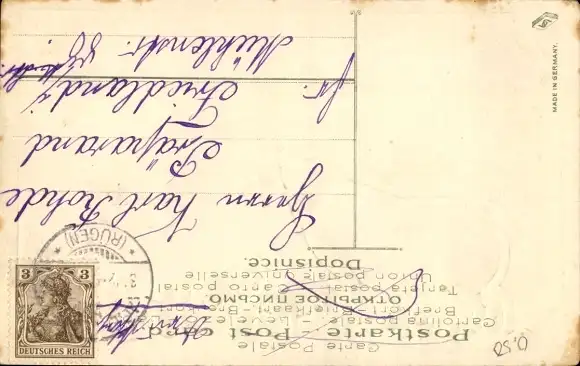 Carte Postale
Postkarte — Post card
Cartolina postale — Levelező-Lap
Brefkort — Briefkaart — Brevkort
ОТКРЫТОЕ ПИСЬМО.
Tarjeta postal — Carto postal
Union postale universelle
Dopisnice.
Herrn Karl Rohde
Präparand
Friedland i/
Mühlenstr. 88
(RÜGEN)
3 3
DEUTSCHES REICH
MADE IN GERMANY.
0,50